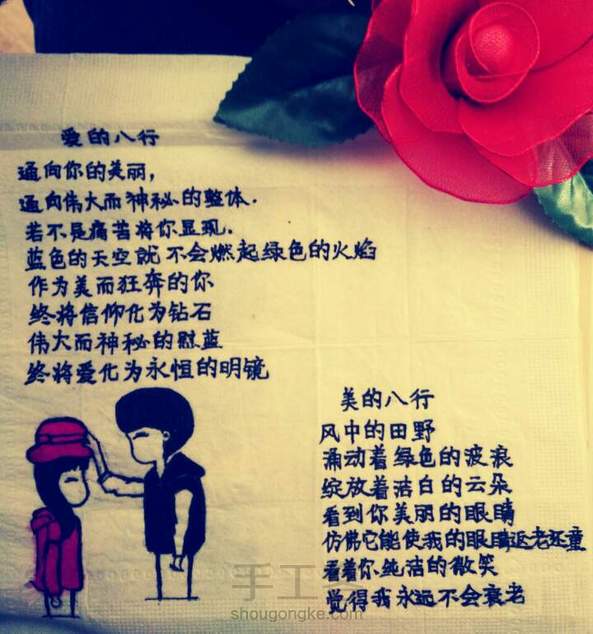 爱的八行
通向你的美丽，
通向伟大而神秘的整体.
若不是痛苦将你显现.
蓝色的天空就不会燃起绿色的火焰
作为美而狂奔的你
终将信仰化为钻石
伟大而神秘的慰蓝
终将爱化为永恒的明镜
美的八行
风中的田野
涌动着绿色的波浪
绽放着洁白的云朵
看到你美丽的眼睛
仿佛它能使我的眼睛返老还童
看着你纯洁的微笑
觉得我永远不会衰老
手工
shougongke.com